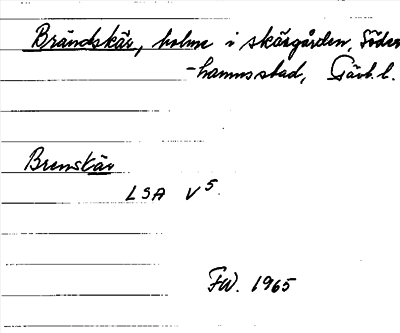 Brändskär, holme i skärgården, Söder
-hamns stad, Gävl. l.
Brenskär
LSA V 5.
FW. 1965